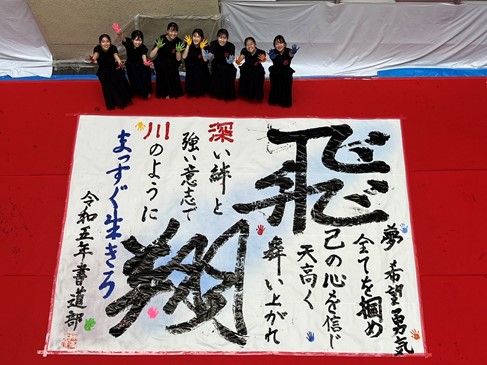 夢 希望 勇気
全てを掴め
己の心を信じ
天高く
舞い上がれ
飛翔
深い絆と
強い意志で
川のように
まっすぐ生きろ
令和五年 書道部